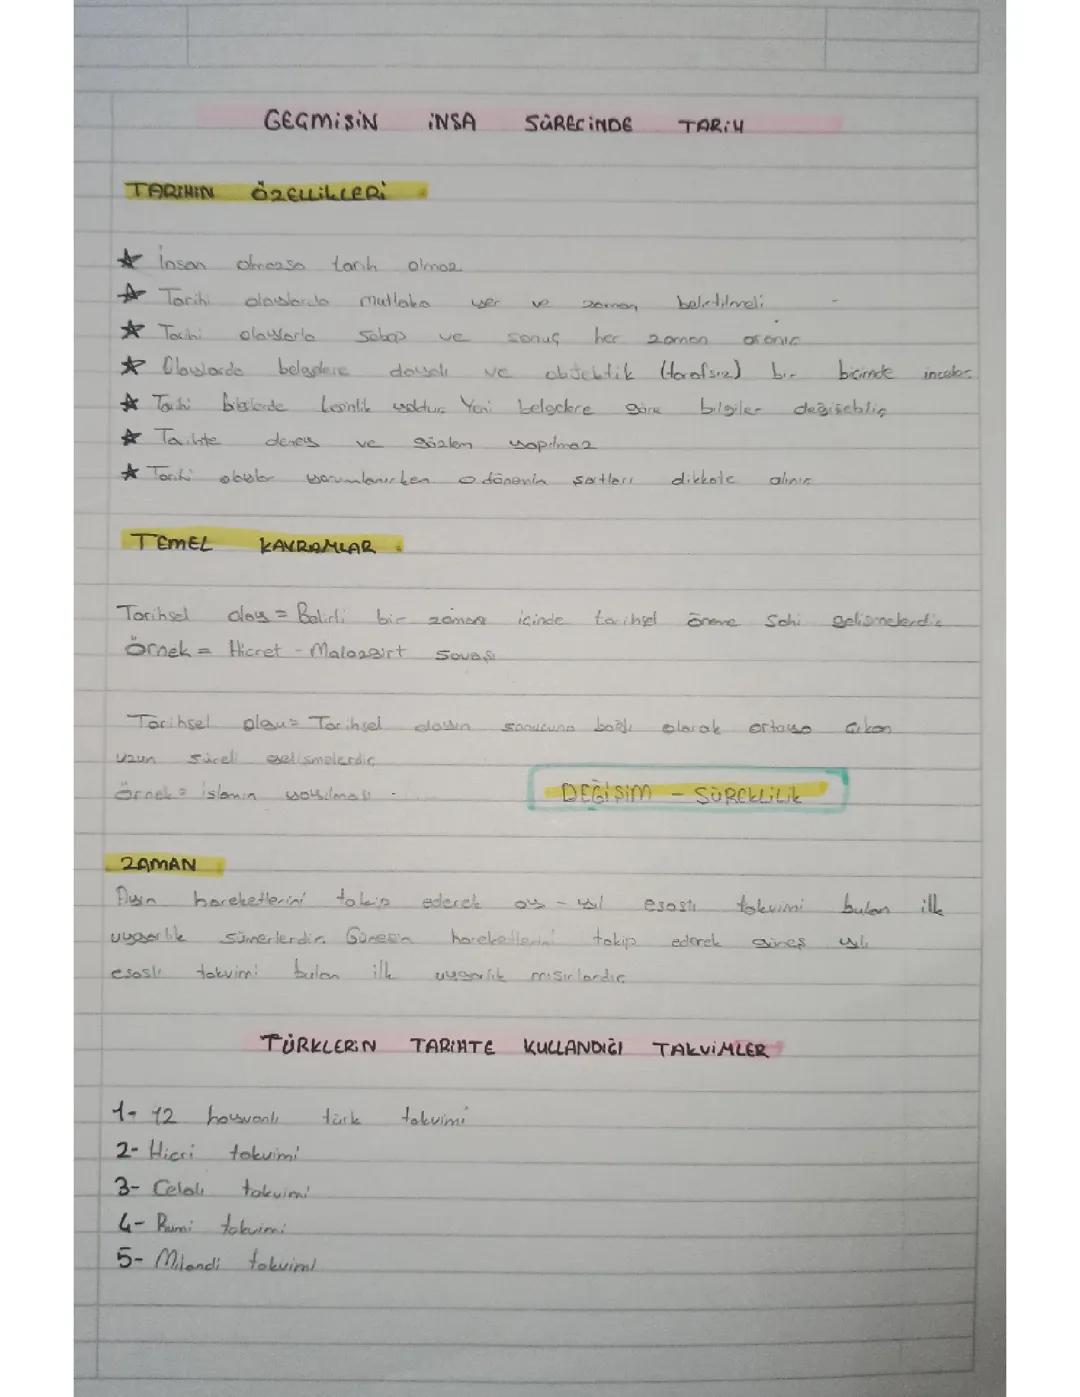 GEÇMİŞİN İNŞA SÜRECİNDE TARİH
TARİHİN ÖZELLİKLERİ
★ İnsan olmazsa tarih olmaz
★ Tarihi olaylarda mutlaka yer ve zaman belirtilmeli
★ Tarihi olaylarla sebep ve sonuç her zaman aranır
★ Olaylarda belgelere dayalı ve objektik (tarafsız) bir biçimde inceler
★ Tarihi bilgilerde kesinlik yoktur Yeni belgelere göre bilgiler değişebilir
★ Tarihte deney ve gözlem yapılmaz
★ Tarihi olaylar yorumlanırken o dönemin şartları dikkate alınır
TEMEL KAVRAMLAR
Tarihsel olay = Belirli bir zaman içinde tarihsel öneme sahi gelişmelerdir
Örnek = Hicret - Malazgirt Savaşı
Tarihsel olgu = Tarihsel olayın sonucuna bağlı olarak ortaya çıkan
uzun süreli gelişmelerdir
Örnek = islamın yayılması
DEĞİŞİM - SÜREKLİLİK
ZAMAN
Ayın hareketlerini takip ederek ay - yıl esaslı takvimi bulan ilk
uygarlık sümerlerdir. Güneşin hareketlerini takip ederek güneş yılı
esaslı takvimi bulan ilk uygarlık mısırlardır
TÜRKLERİN TARİHTE KULLANDIĞI TAKVİMLER
1- 12 hayvanlı türk takvimi
2- Hicri takvimi
3- Celali takvimi
4- Rumi takvimi
5- Milandi takvimi